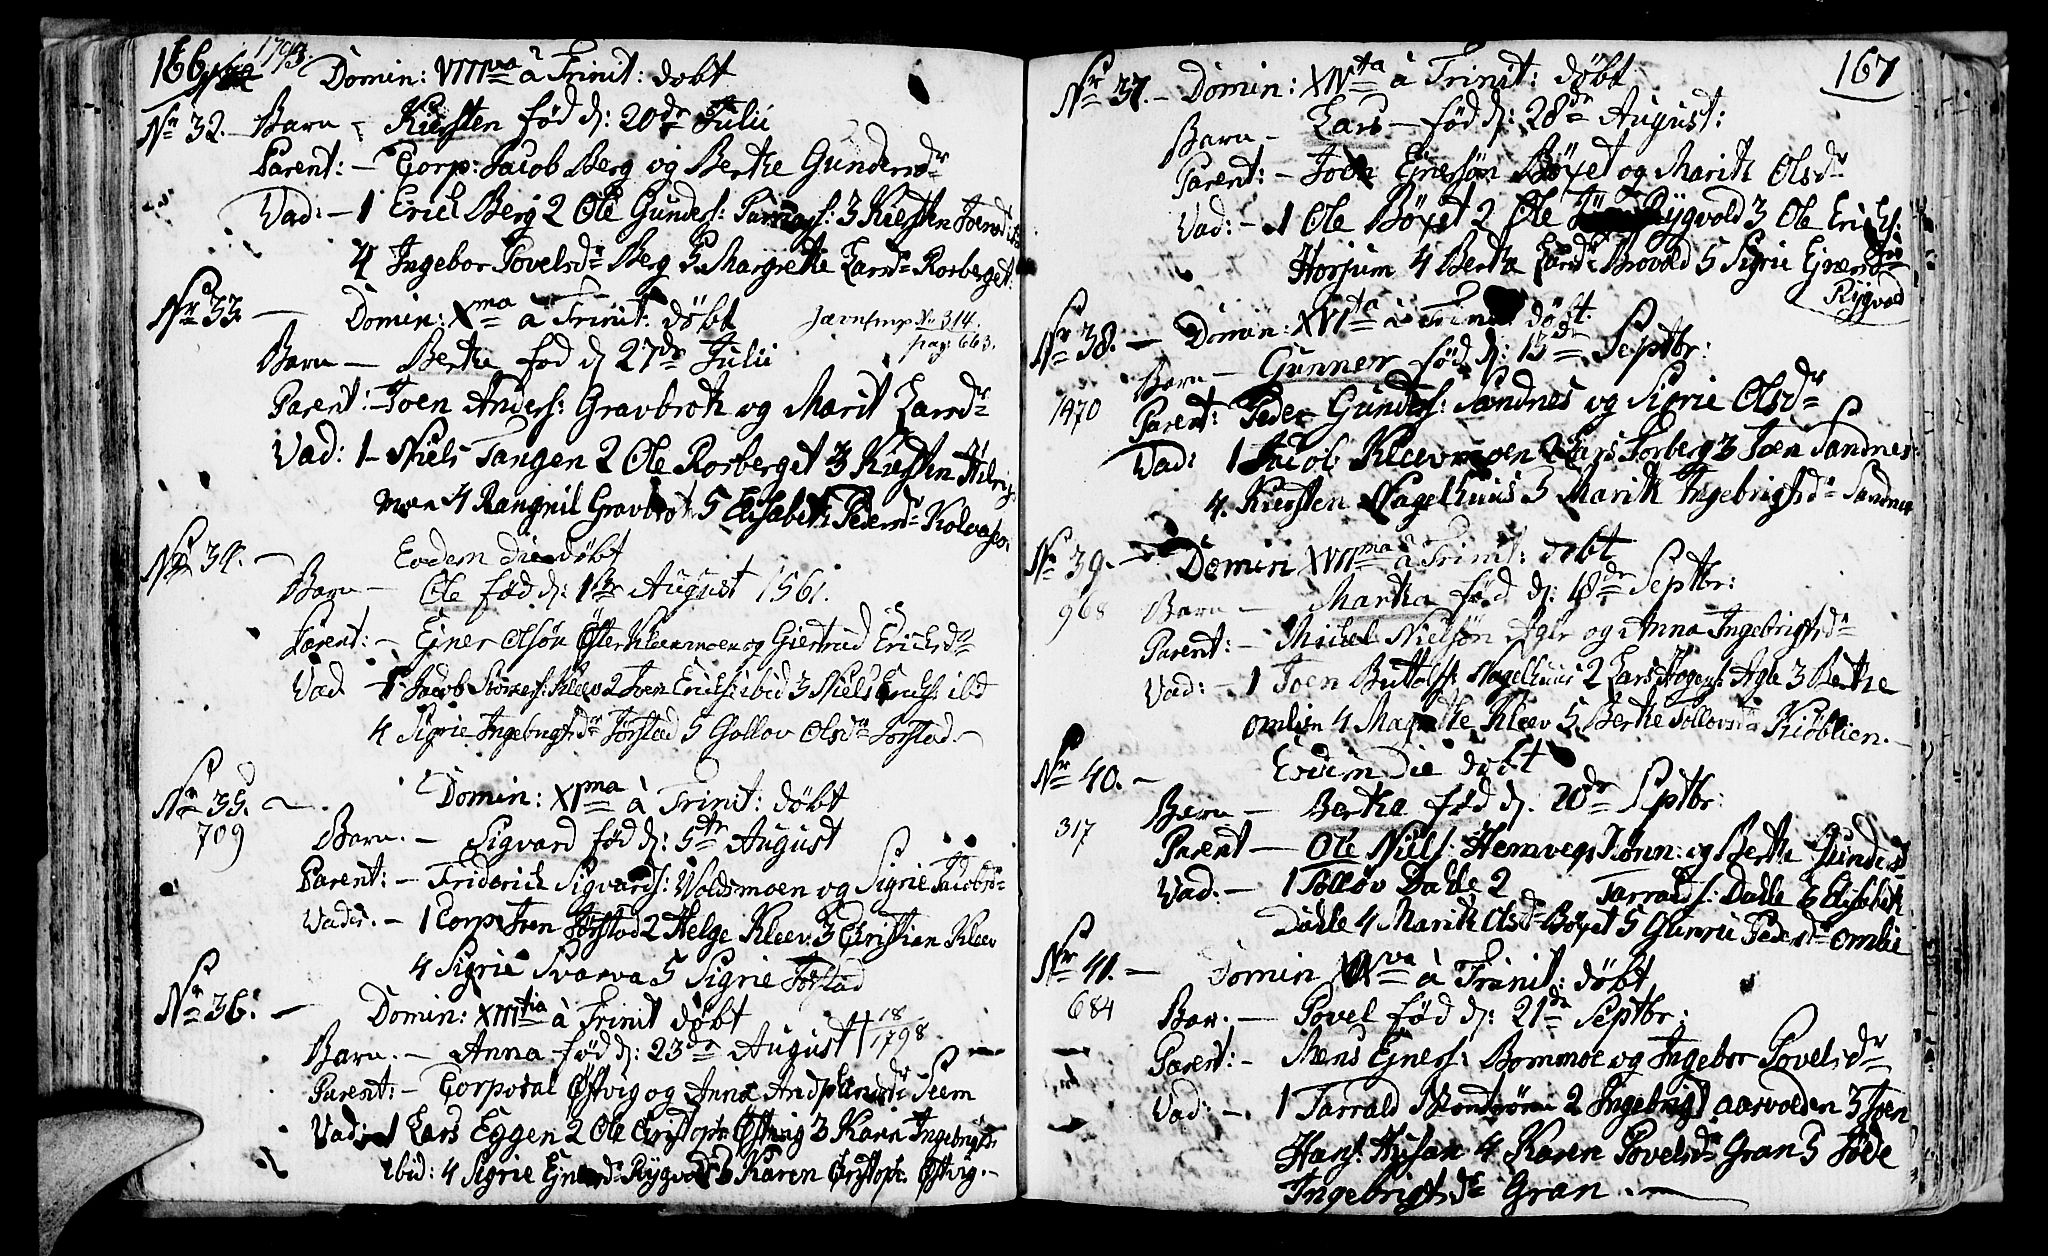 166
1793.
Domin: VIIIva à Trinit: döbt
Nr 32. Barn - Kiersten född d: 20de Julii
Parent: - Corp: Jacob Berg og Berthe Gundersdr
Vad: - 1 Erich Berg 2 Ole Gunders: 3 Kiersten Joensdr
4 Ingebor Povelsdr Berg 5 Margrethe Larsdr Rosberget.
Nr 33. - Domin: Xma à Trinit: döbt
Jævnfmp No 314.
pag: 663.
Barn - Berthe fød d 27de Julii
Parent: - Joen Anders: Gravbroth og Marit Larsdr
Vad: 1 - Niels Tangen 2 Ole Rosberget 3 Kiersten
moen 4 Rangnil Gravbroth 5 Elisabeth Pedersdr
Nr 34. - Eodem Die döbt
Barn - Ole född d: 1ste August 1561.
Parent: - Ejner Olsön Öster Kleevmoen og Giertrud Erichsdr
Vad 1 Jacob Kleev 2 Joen Erichs: ibid 3 Niels Erichs: ibd
4 Sigrie Ingebrigtsdr Jörstad 5 Gollov Olsdr Jörstad. -
Nr 35. - Domin: XIma à Trinit: döbt
709
Barn. - Sigvard född d: 5te August
Parent: - Friderich Sigvards: Woldsmoen og Sigrie Jacobsdr
Vad: - 1 Corp Joen Jörstad 2 Helge Kleev 3 Christian Kleev
4 Sigrie Svarva 5 Sigrie Jörstad
Nr 36: - Domin: XIIItia à Trinit döbt
Barn. - Anna född d: 23de August † 18/1798
Parent: - Corporal Østvig og Anna Seem
Vad: 1 Lars Eggen 2 Ole Christoph: Østvig 3 Karen Ingebrigtsdr
ibid: 4 Sigrie Ejnersdr Rygvold 5 Karen Christoph: Østvig. -
167
Nr 37. - Domin: XIVta à Trinit: döbt
Barn - Lars - född d: 28de August:
Parent: - Joen Ejnersön Böyet og Marith Olsdr
Vad: - 1 Ole Böyet 2 Ole Rygvold 3 Ole Erichs:
Horjum 4 Bertha Larsdr Brovold 5 Sigrie Ejnersdr
Rygvold
Nr 38. - Domin: XVIta à Trinit döbt.
Barn - Gunner född d: 15de Septbr:
1470
Parent: Peder Gunders: Sandnes og Sigrie Olsdr
Vad: 1 Jacob Kleevmoen 2 Lars Forberg 3 Joen Sandnes:
4. Kiersten Nagelhuus 5 Marith Ingebrigtsdr Sandnes
Nr 39. - Domin XVIIma à Trinit: döbt
968
Barn - Martha född d: 18de Septbr:
Parent: - Michel Nielsön Agle og Anna Ingebrigtsdr
Vad: - 1 Joen Buttolfs: Nagelhuus 2 Lars Hogens: Agle 3 Berthe
omlien 4 Kleev 5 Berthe Tollovsdr Kiöblien. -
Nr 40. - Eodem Die döbt
Barn - Berthe född d. 20de Septbr:
317
Parent - Ole Niels: og Berthe Gundersdr
Vad. - 1 Tolløv Dahle 2 Tarralds: Dahle 3 Elisabeth
Dahle 4 Marith Olsdr Böyet 5 Gunrie Pedersdr omlie
Nr 41. - Domin XIXva à Trinit: döbt
684
Bar. - Povel född d: 21de Septbr:
Parent: - Mons Ejners: Bommoe og Ingebor Povelsdr
Vad: - 1 Tarrald 2 Ingebrigt aarvolden 3 Joen
Hans: 4 Karen Povelsdr Gran 5
Ingebrigtsdr Gran. -